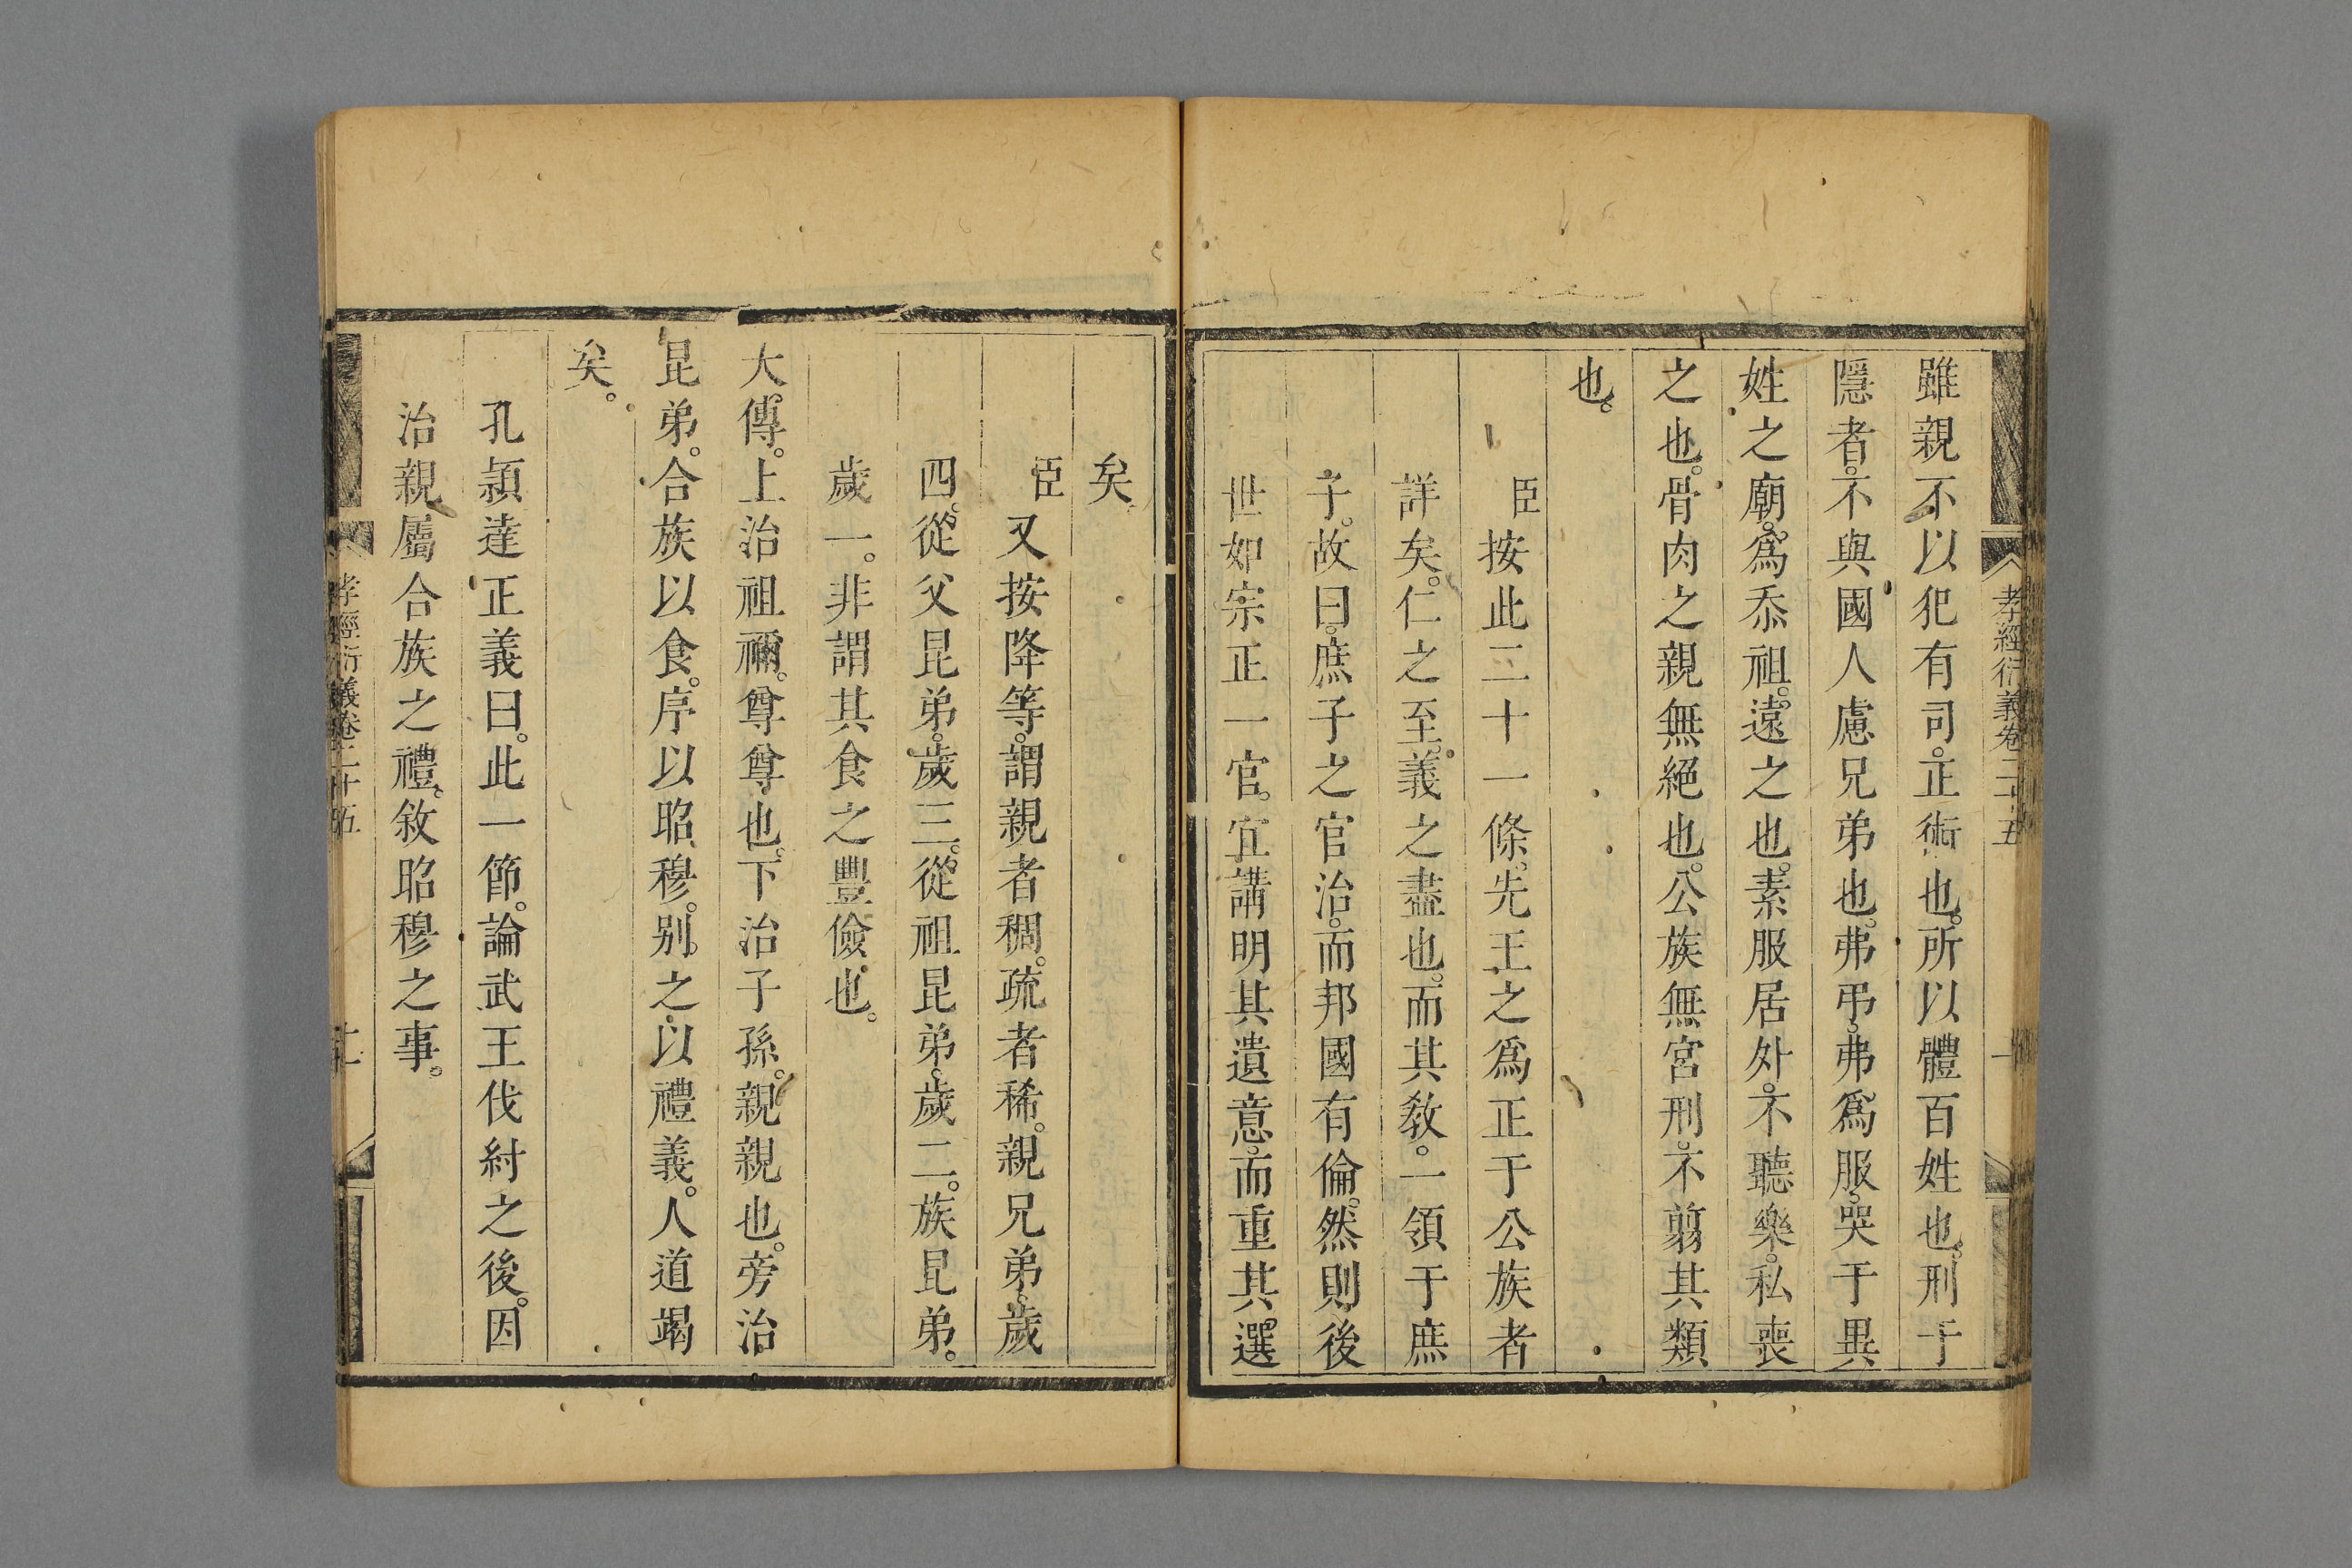 孝經衍義卷二十五
雖親不以犯有司。正術也。所以體百姓也。刑于
隱者。不與國人慮兄弟也。弗弔。弗爲服。哭于異
姓之廟。爲忝祖。遠之也。素服居外。不聽樂。私喪
之也。骨肉之親無絕也。公族無宮刑。不翦其類
也。
臣按此二十一條。先王之爲正于公族者
詳矣。仁之至。義之盡也。而其教。一領于庶
子。故曰。庶子之官治。而邦國有倫。然則後
世如宗正一官。宜講明其遺意。而重其選
矣。
臣又按降等。謂親者稠。疏者稀。親兄弟。歲
四。從父昆弟。歲三。從祖昆弟。歲二。族昆弟。
歲一。非謂其食之豐儉也。
大傳。上治祖禰。尊尊也。下治子孫。親親也。旁治
昆弟。合族以食。序以昭穆。別之以禮義。人道竭
矣。
孔頴達正義曰。此一節。論武王伐紂之後。因
治親屬合族之禮。敘昭穆之事。
孝經衍義卷二十五